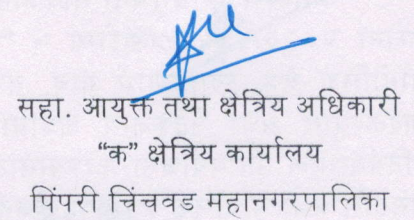 सहा. आयुक्त तथा क्षेत्रिय अधिकारी
“क” क्षेत्रिय कार्यालय
पिंपरी चिंचवड महानगरपालिका